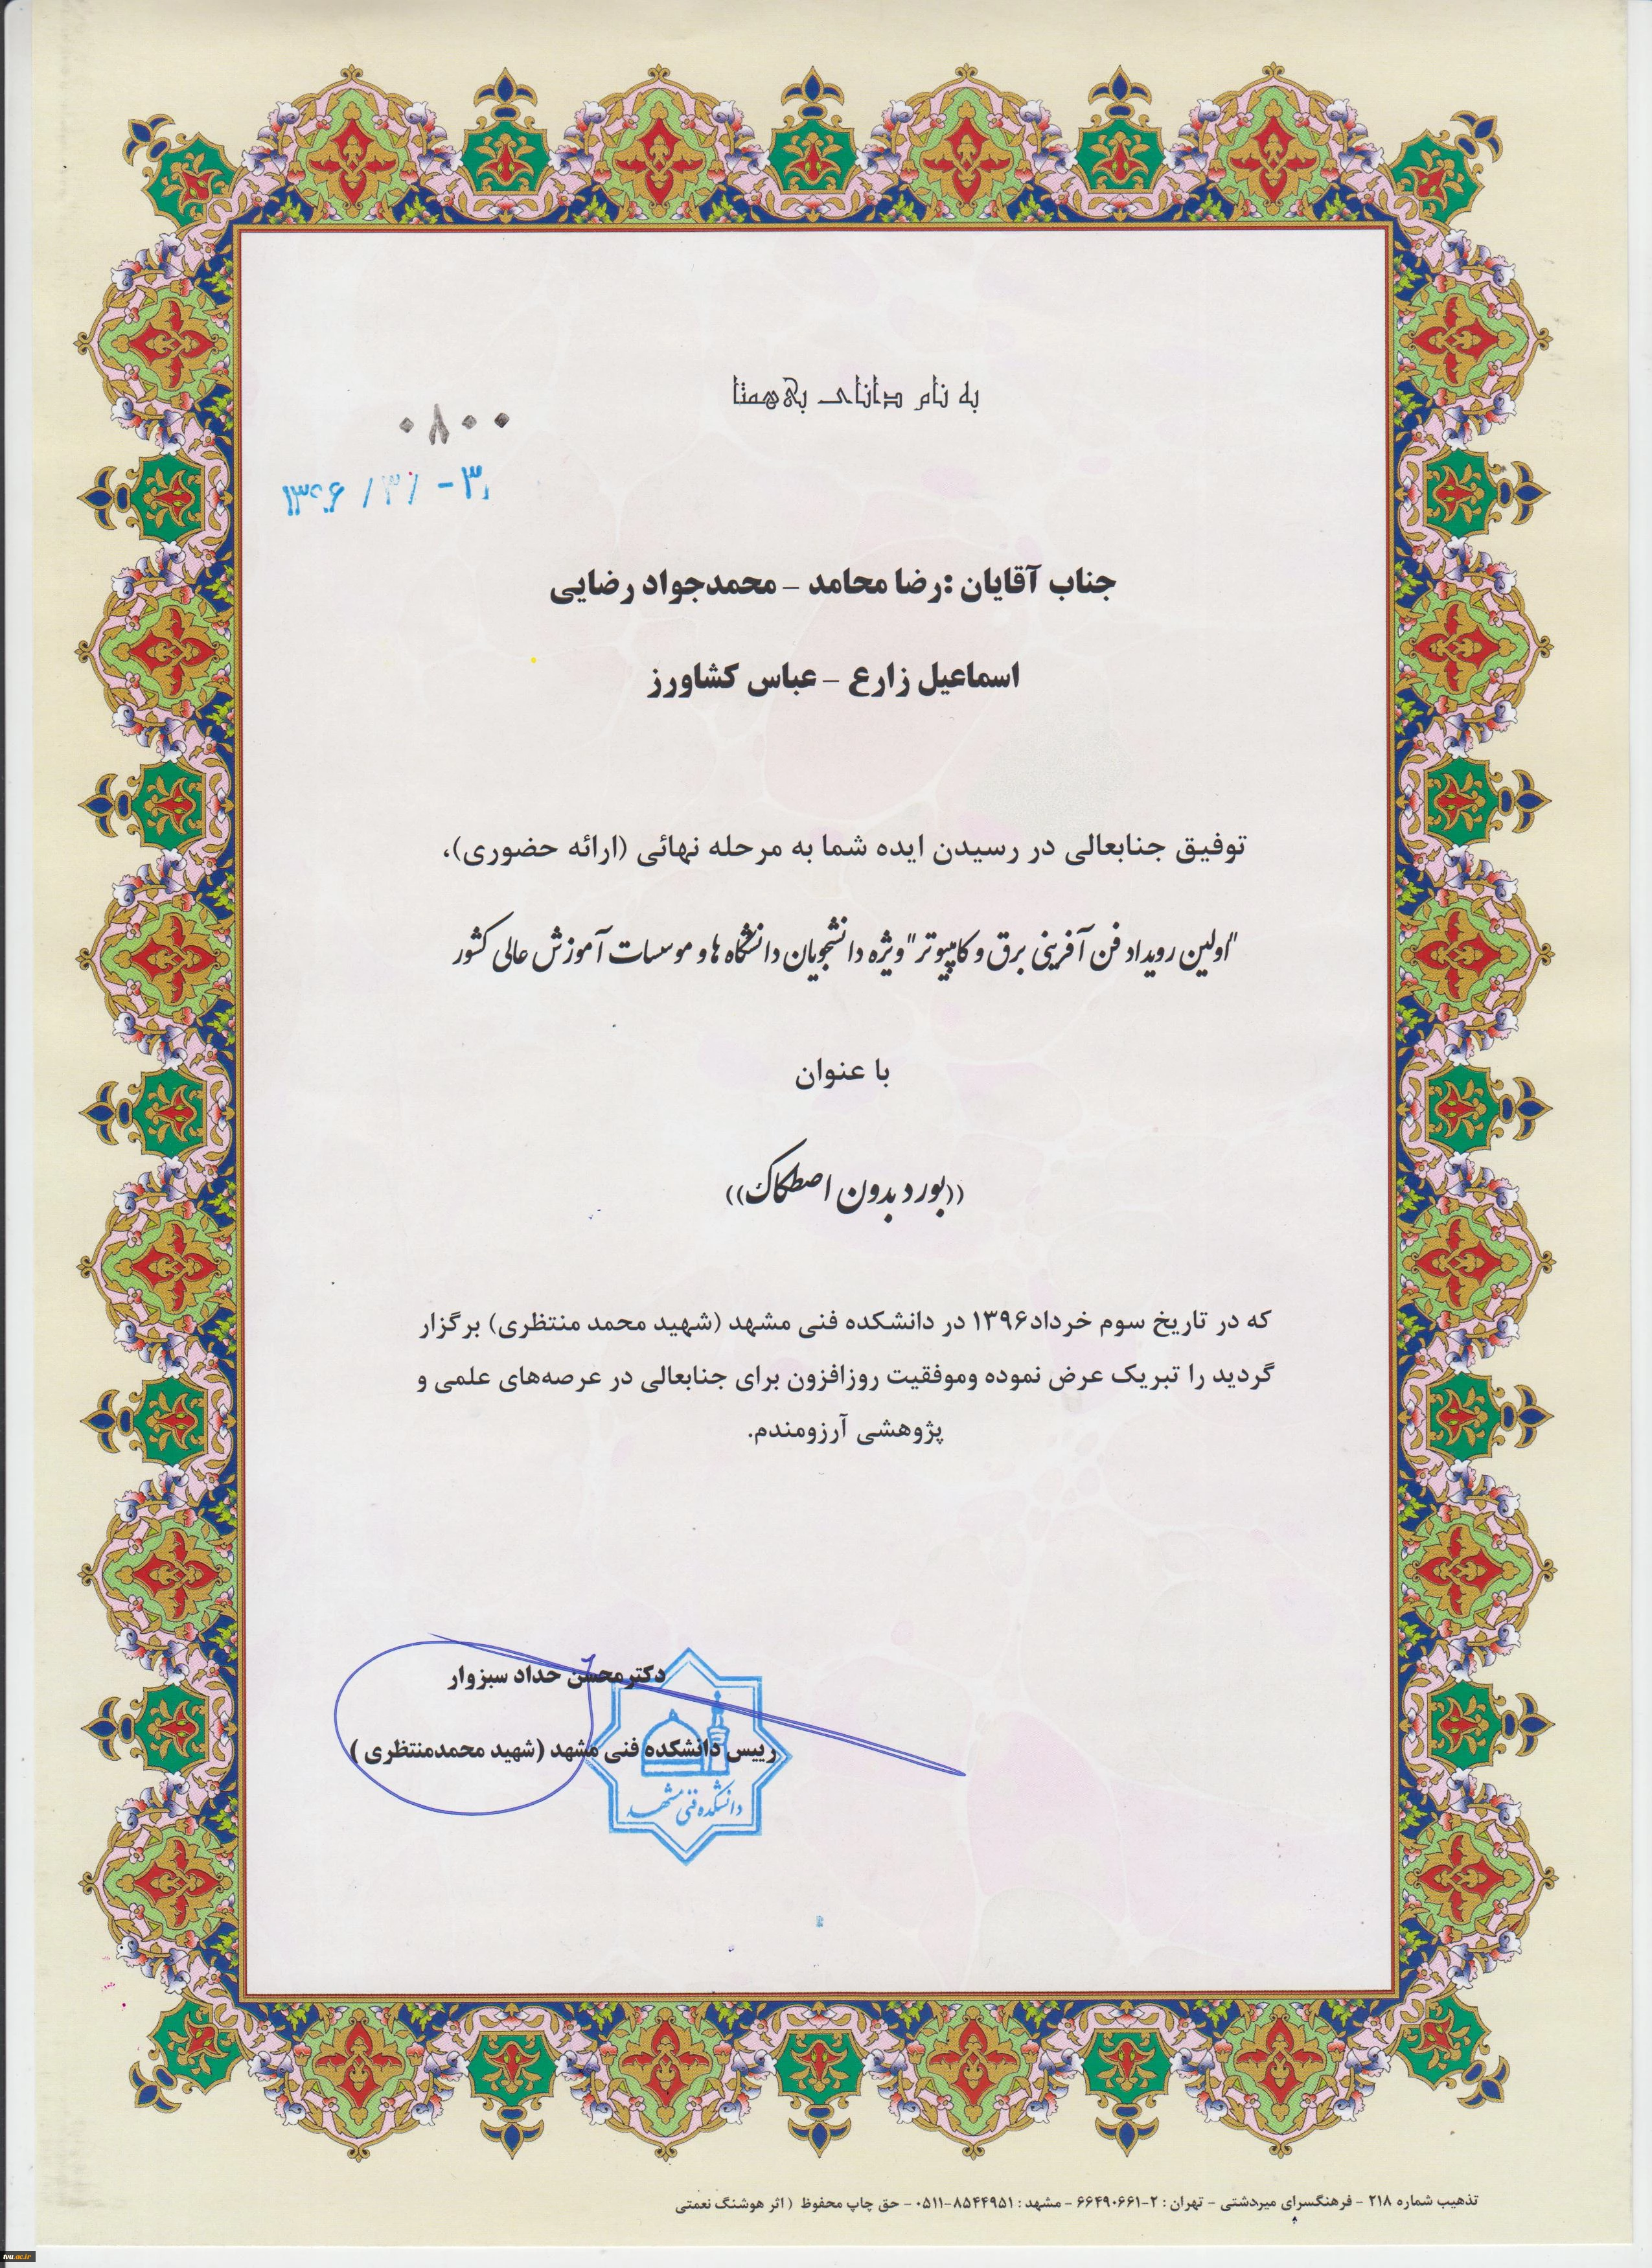 به نام دانای بی‌همتا
۰۸۰۰
جناب آقایان :رضا محامد – محمدجواد رضایی
اسماعیل زارع – عباس کشاورز
توفیق جنابعالی در رسیدن ایده شما به مرحله نهائی (ارائه حضوری)،
"اولین رویداد فن آفرینی برق و کامپیوتر" ویژه دانشجویان دانشگاه ها و موسسات آموزش عالی کشور
با عنوان
((بورد بدون اصطکاک))
که در تاریخ سوم خرداد۱۳۹۶ در دانشکده فنی مشهد (شهید محمد منتظری) برگزار
گردید را تبریک عرض نموده وموفقیت روزافزون برای جنابعالی در عرصه‌های علمی و
پژوهشی آرزومندم.
دکترمحسن حداد سبزوار
رییس دانشکده فنی مشهد (شهید محمدمنتظری )
دانشکده فنی مشهد
تذهیب شماره ۲۱۸ - فرهنگسرای میردشتی - تهران : ۲-۶۶۴۹۰۶۶۱ - مشهد : ۸۵۴۴۹۵۱-۰۵۱۱ - حق چاپ محفوظ ( اثر هوشنگ نعمتی
tvu.ac.ir